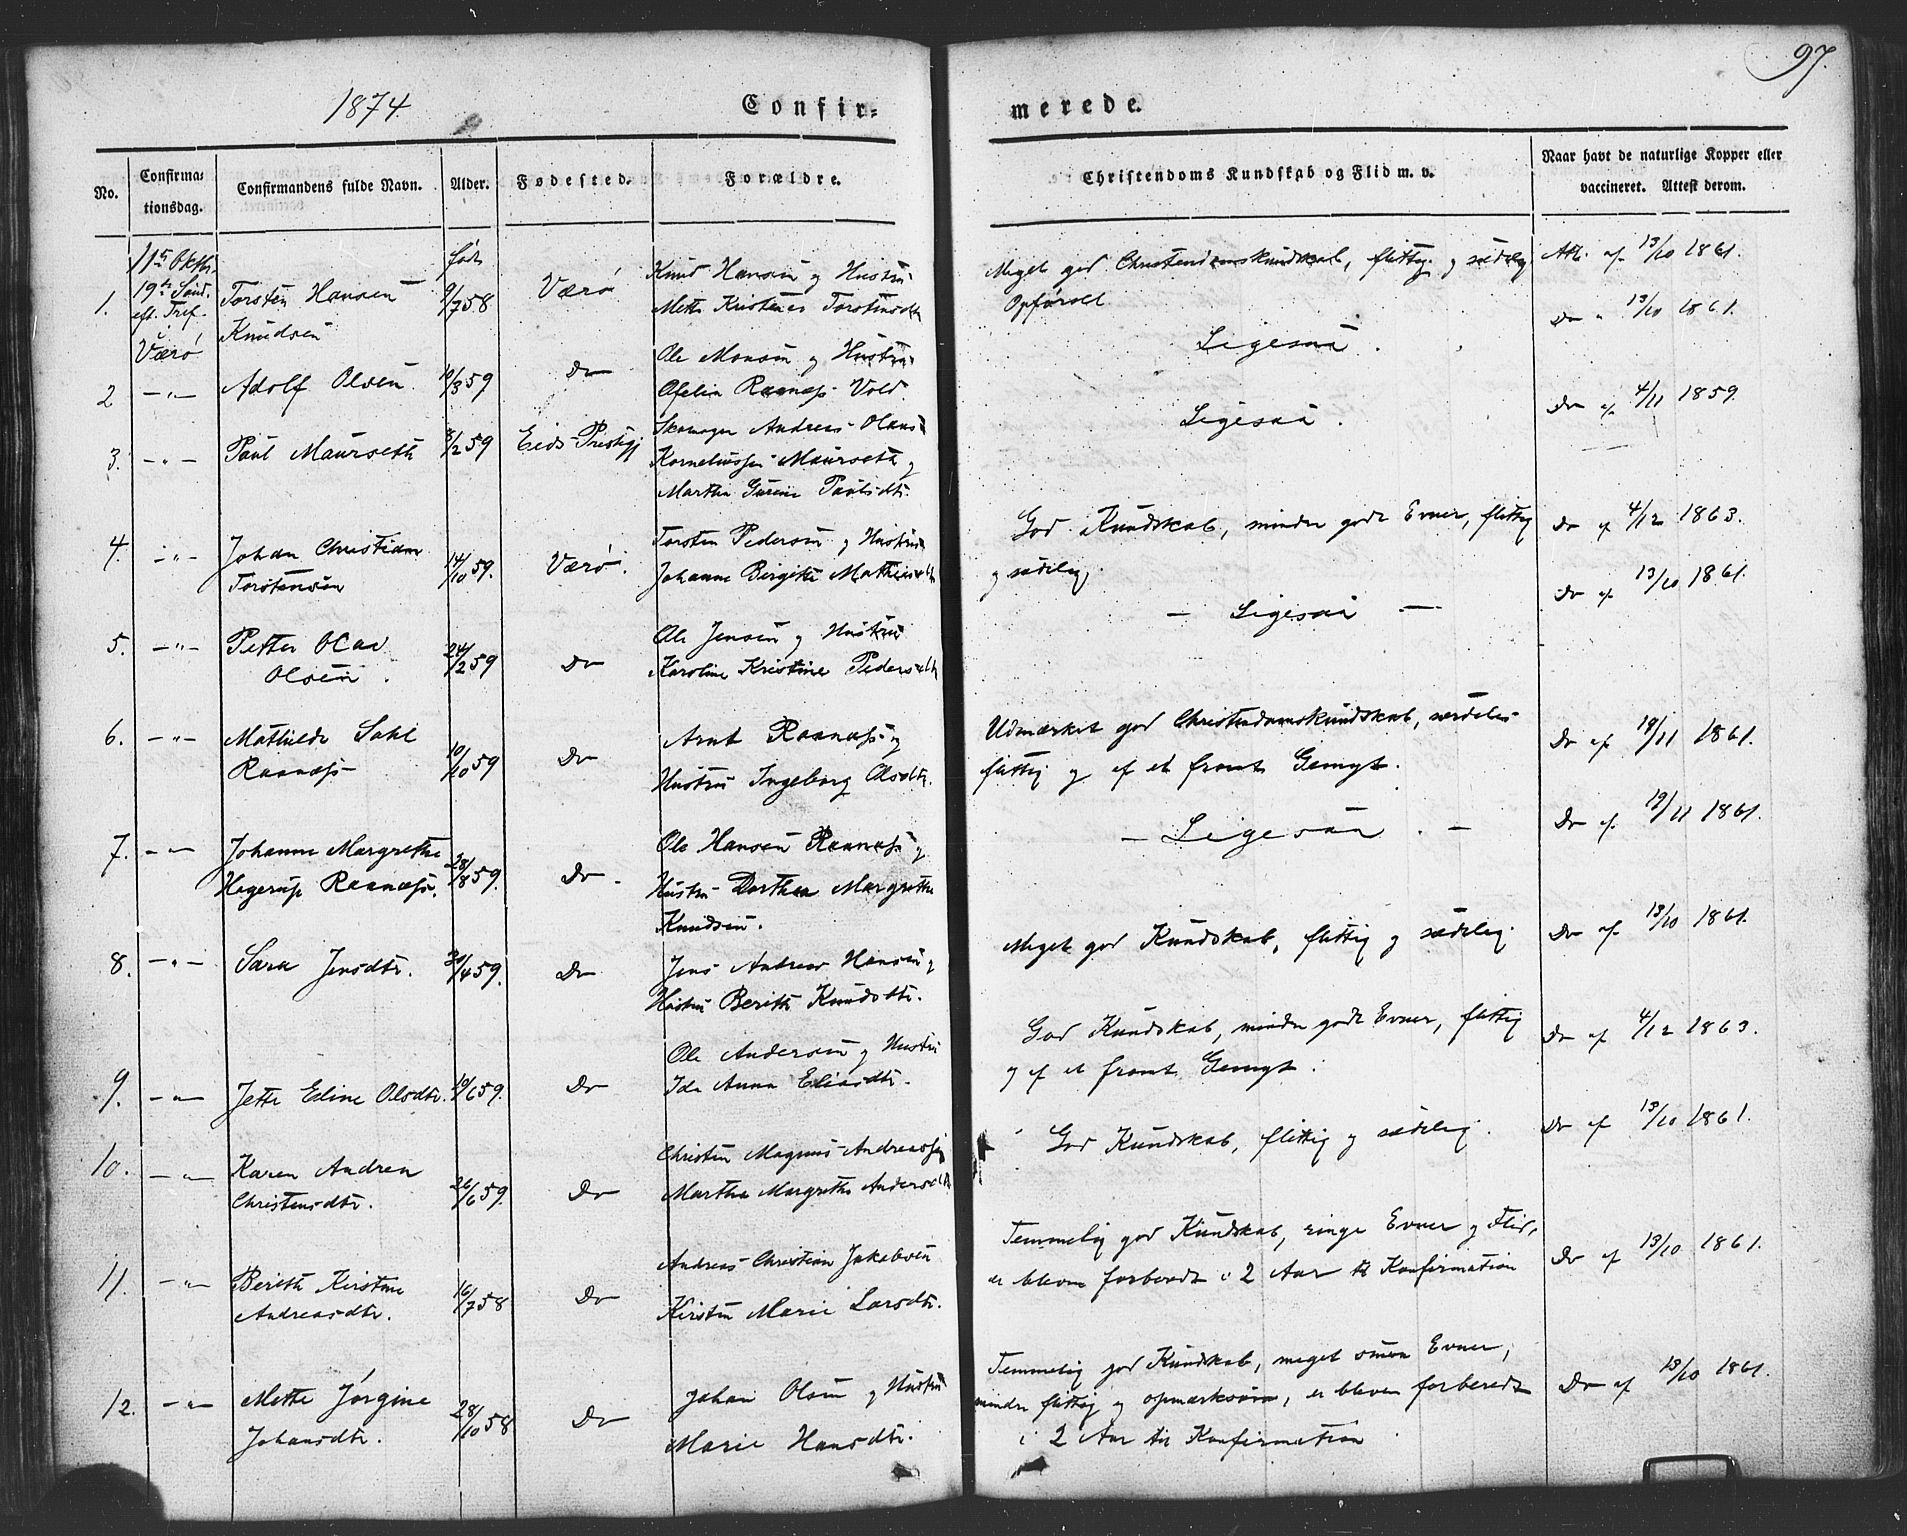 97.
1874.
Confir-
merede.
No.
Confirma-
tionsdag.
Confirmandens fulde Navn.
Alder.
Fødested.
Forældre.
Christendoms Kundskab og Flid m. v.
Naar havt de naturlige Kopper eller
vaccineret. Attest derom.
1.
11te Oktbr.
19de Sønd.
eft. Tref.
Værø
Torsten Hansen
Knudsen
født
9/7 58
Værø
Knud Hansen og Hustru
Mette Kristense Torstensdtr
Meget god Christendomskundskab, flittig og sædelig
Opførsel
Att. af 13/10 1861.
2
-"-
Adolf Olsen
10/3 59
Do
Ole Monsen og Hustru
Ofelia Raanæss Vold.
Ligesaa.
Do " 13/10 1861.
3.
-"-
Paul Maurseth
8/2 59
Eids Prestegj
Skomager Andreas Olaus
Korneliussen Maurseth og
Martha Gurine Paulsdtr.
Ligesaa.
Do af 4/11 1859.
4.
-"-
Johan Christian
Torstensen
14/10 59.
Værø.
Torsten Pedersen og Hustru
Johanne Birgitte Mathisdtr
God Kundskab, mindre gode Evner, flittig
og sædelig.
Do af 4/12 1863.
5.
-"-
Petter Olai
Olsen.
24/2 59
Do
Ole Jensen og Hustru
Karoline Kristine Pedersdtr
- Ligesaa -
Do af 13/10 1861.
6.
-"-
Mathilde Dahl
Raanæss
10/10 59
Do
Arnt Raanæss og
Hustru Ingeborg Olsdtr.
Udmærket god Christendomskundskab, særdeles
flittig og af et fromt Gemyt.
Do af 19/11 1861.
7.
-"-
Johanne Margrethe
Hagerup Raanæss.
28/8 59.
Do.
Ole Hansen Raanæss og
Hustru Dorthea Margrethe
Knudsen.
- Ligesaa. -
Do af. 19/11 1861.
8.
-"-
Sara Jensdtr.
30/4 59.
Do
Jens Andreas Hansen og
Hustru Berith Knudsdtr.
Meget god Kundskab, flittig og sædelig.
Do af. 13/10 1861.
9.
-"-
Jette Eline Olsdtr.
19/6 59.
Do
Ole Andersen og Hustru
Ida Anna Eliasdtr.
God Kundskab, mindre gode Evner, flittig
og af et fromt Gemyt.
Do af 4/12 1863.
10.
-"-
Karen Andrea
Christensdtr.
26/6 59.
Do
Christen Magnus Andreassen
Martha Margrethe Andersdtr
God Kundskab, flittig og sædelig.
Do af 13/10 1861.
11.
-"-
Berith Kirstine
Andreasdtr.
16/7 58
Do
Andreas Christian Jakobsen
Kirsten Marie Larsdtr.
Temmelig god Kundskab, ringe Evner og Flid,
er bleven forberedt i 2 Aar til Konfirmation
Do af 13/10 1861.
12.
-"-
Mette Jørgine
Johansdtr.
28/10 58
Do
Johan Olsen og Hustru
Marie Hansdtr.
Temmelig god Kundskab, meget smaa Evner,
mindre flittig og opmærksom, er bleven forberedt
i 2 Aar til Konfirmation
Do af 13/10 1861.